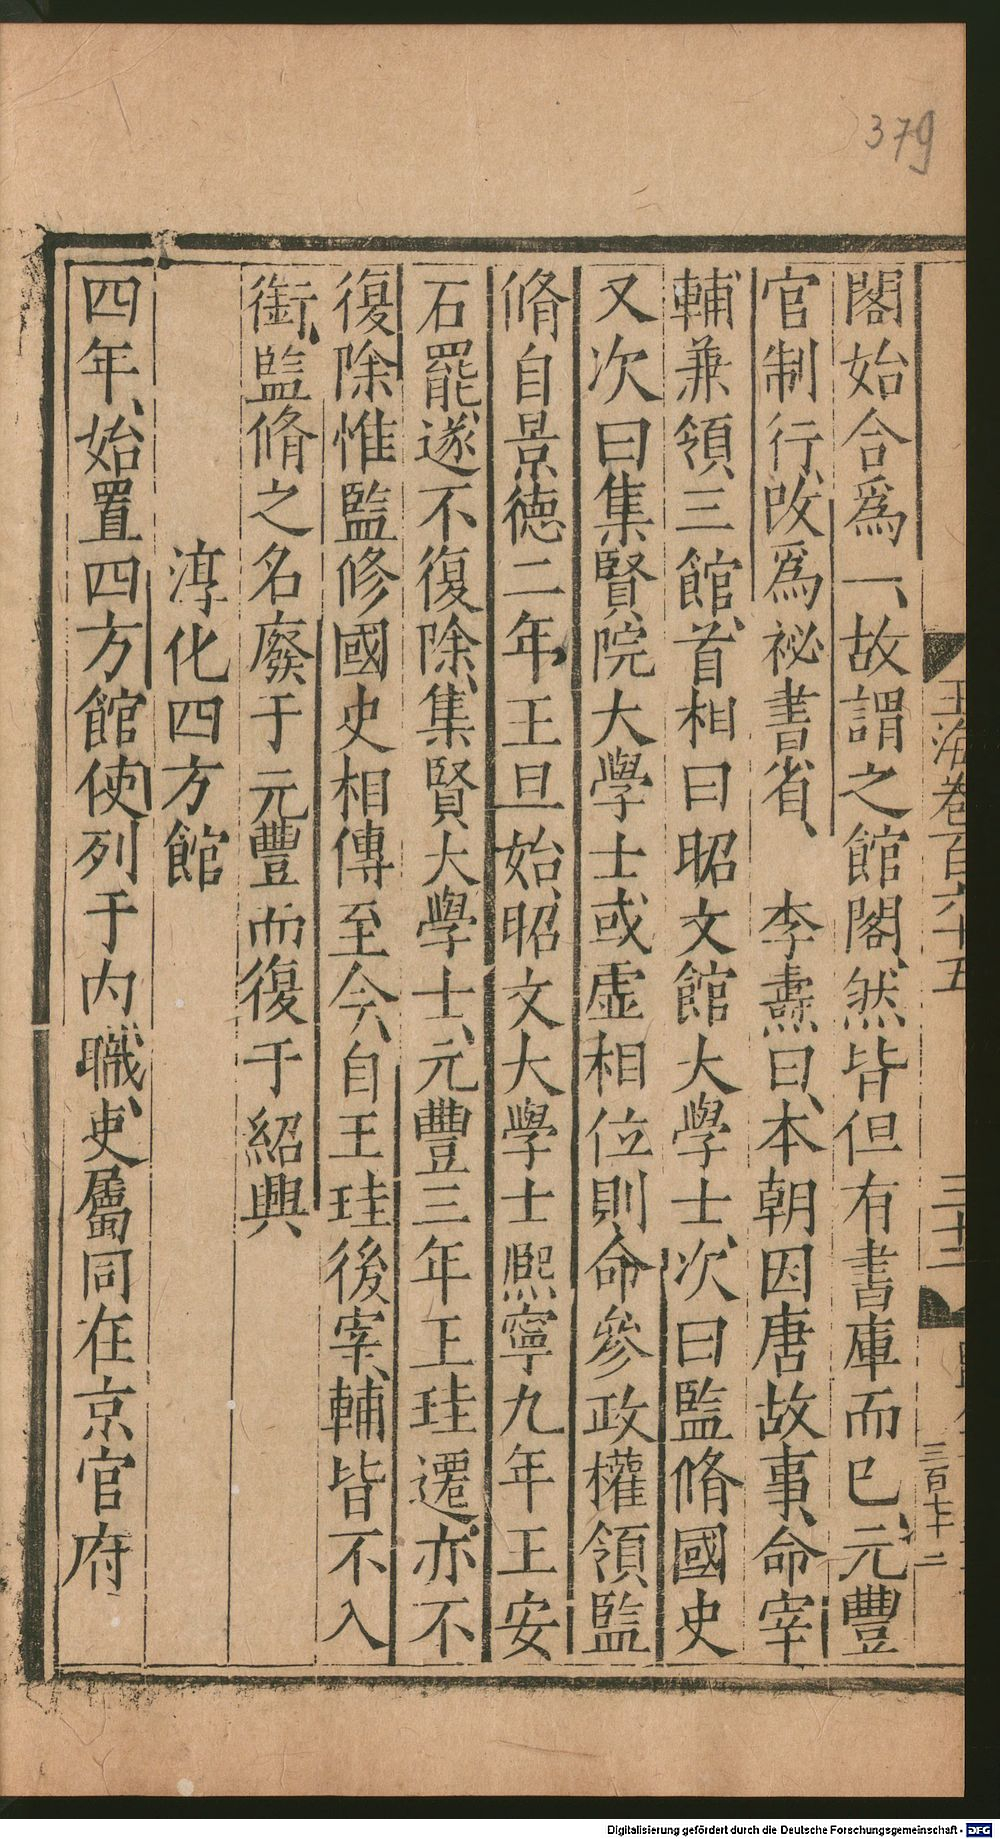 379
玉海卷百六十五
三百七十二
閣始合爲一、故謂之館閣、然皆但有書庫而已、元豐
官制行、改爲祕書省、 李燾曰、本朝因唐故事、命宰
輔兼領三館、首相曰昭文館大學士、次曰監脩國史
又次曰集賢院大學士或虛相位則命參政權領監
脩自景德二年、王旦始、昭文大學士熙寧九年王安
石罷、遂不復除、集賢大學士、元豐三年王珪遷、亦不
復除惟監修國史相傳至今、自王珪後宰輔皆不入
銜、監脩之名廢于元豐而復于紹興
淳化四方館
四年、始置四方館使列于内職、吏屬同在京官府
Digitalisierung gefördert durch die Deutsche Forschungsgemeinschaft - DFG